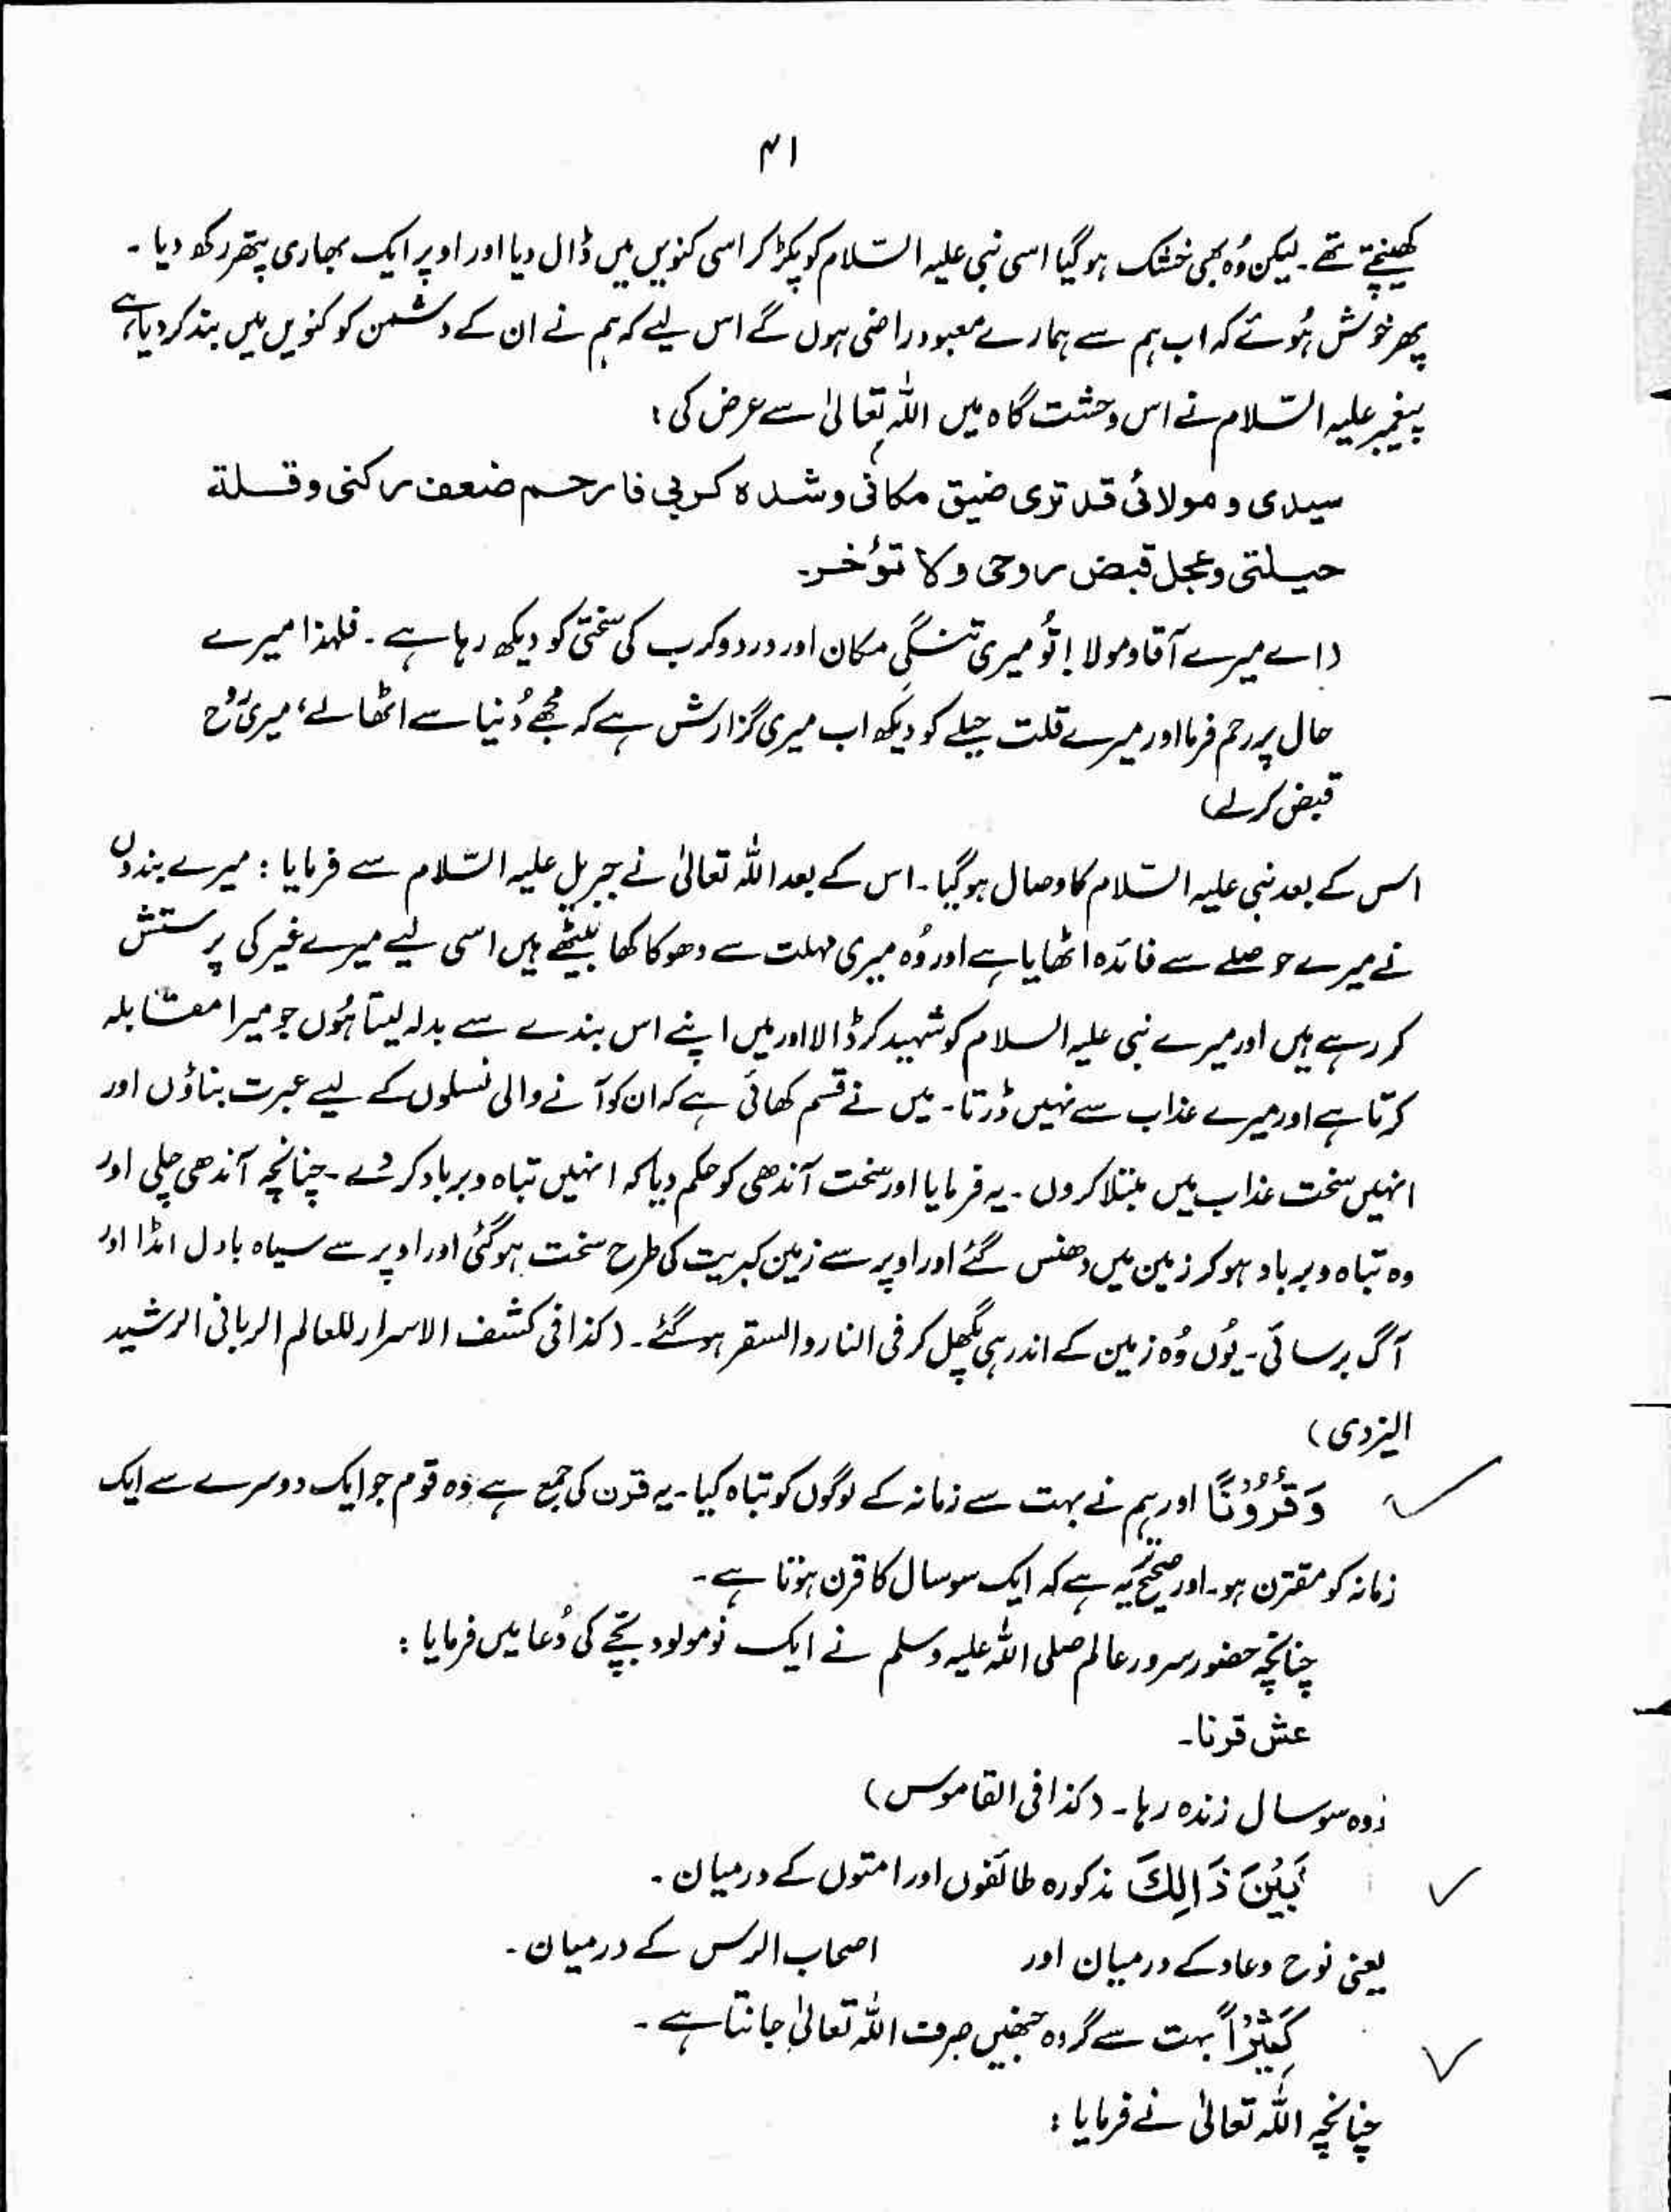 ۴۱
کھینچتے تھے۔ لیکن وُہ بھی خشک ہو گیا اسی نبی علیہ السّلام کو پکڑ کر اسی کنویں میں ڈال دیا اور اوپر ایک بھاری پتھر رکھ دیا۔
پھر خوش ہُوئے کہ اب ہم سے ہمارے معبود راضی ہوں گے اس لیے کہ ہم نے ان کے دشمن کو کنویں میں بند کر دیا ہے
پیغمبر علیہ السّلام نے اس وحشت گاہ میں اللہ تعالیٰ سے عرض کی :
سیدی و مولائی قد تری ضیق مکانی وشدہ کربی فارحم ضعف رکنی وقلة
حیلتی وعجل قبض روحی ولا تؤخر۔
(اے میرے آقا ومولا! تُو میری تنگیِ مکان اور درد وکرب کی سختی کو دیکھ رہا ہے۔ فلہذا میرے
حال پر رحم فرما اور میرے قلت حیلے کو دیکھ اب میری گزارش ہے کہ مجھے دُنیا سے اٹھا لے، میری رُوح
قبض کرلے)
اس کے بعد نبی علیہ السّلام کا وصال ہو گیا۔ اس کے بعد اللہ تعالیٰ نے جبریل علیہ السّلام سے فرمایا : میرے بندوں
نے میرے حوصلے سے فائدہ اٹھایا ہے اور وُہ میری مہلت سے دھوکا کھا بیٹھے ہیں اسی لیے میرے غیر کی پرستش
کر رہے ہیں اور میرے نبی علیہ السلام کو شہید کر ڈالا اور میں اپنے اس بندے سے بدلہ لیتا ہُوں جو میرا مقابلہ
کرتا ہے اور میرے عذاب سے نہیں ڈرتا۔ میں نے قسم کھائی ہے کہ ان کو آنے والی نسلوں کے لیے عبرت بناؤں اور
انہیں سخت عذاب میں مبتلا کروں۔ یہ فرمایا اور سخت آندھی کو حکم دیا کہ انہیں تباہ و برباد کر دے۔ چنانچہ آندھی چلی اور
وہ تباہ و برباد ہو کر زمین میں دھنس گئے اور اوپر سے زمین کبریت کی طرح سخت ہو گئی اور اوپر سے سیاہ بادل امڈا اور
آگ برسائی۔ یُوں وُہ زمین کے اندر ہی پگھل کر فی النار والسقر ہو گئے۔ (کذا فی کشف الاسرار للعالم الربانی الرشید
الیزدی)
وَقُرُوْنًا اور ہم نے بہت سے زمانہ کے لوگوں کو تباہ کیا۔ یہ قرن کی جمع ہے وہ قوم جو ایک دوسرے سے ایک
زمانہ کو مقترن ہو۔ اور صحیح یہ ہے کہ ایک سو سال کا قرن ہوتا ہے۔
چنانچہ حضور سرور عالم صلی اللہ علیہ وسلم نے ایک نومولود بچّے کی دُعا میں فرمایا :
عش قرنا۔
زوہ سو سال زندہ رہا۔ (کذا فی القاموس)
بَیْنَ ذَالِكَ مذکورہ طائفوں اور امتوں کے درمیان۔
یعنی نوح و عاد کے درمیان اور اصحاب الرس کے درمیان۔
كَثِیْرًا بہت سے گروہ جنھیں صرف اللہ تعالیٰ جانتا ہے۔
چنانچہ اللہ تعالیٰ نے فرمایا :